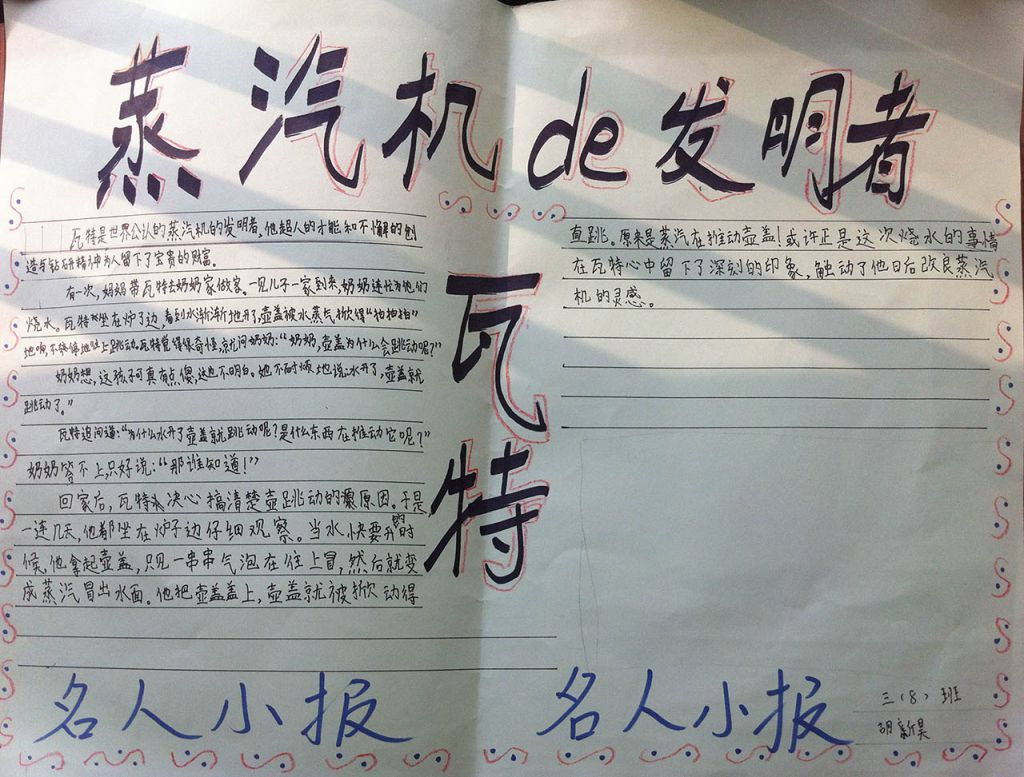 蒸汽机de发明者
瓦特
瓦特是世界公认的蒸汽机的发明者,他超人的才能和不懈的创
造与钻研精神为人留下了宝贵的财富。
有一次,妈妈带瓦特去奶奶家做客。一见儿子一家到来,奶奶连忙为他们
烧水。瓦特坐在炉子边,看到水渐渐地开了,壶盖被水蒸气掀得“拍拍拍”
地响,不停地往上跳动。瓦特觉得很奇怪,就问奶奶:“奶奶,壶盖为什么会跳动呢?”
奶奶想,这孩子可真有点傻,这也不明白。她不耐烦地说:水开了,壶盖就
跳动了。”
瓦特追问道:“为什么水开了壶盖就跳动呢?是什么东西在推动它呢?”
奶奶答不上,只好说:“那谁知道!”
回家后,瓦特决心搞清楚壶跳动的原因。于是
一连几天,他都坐在炉子边仔细观察。当水快要开的时
候,他拿起壶盖,只见一串串气泡在往上冒,然后就变
成蒸汽冒出水面。他把壶盖盖上,壶盖就被掀动得
直跳。原来是蒸汽在推动壶盖!或许正是这次烧水的事情
在瓦特心中留下了深刻的印象,触动了他日后改良蒸汽
机的灵感。
名人小报
名人小报
三(8)班
胡新昊